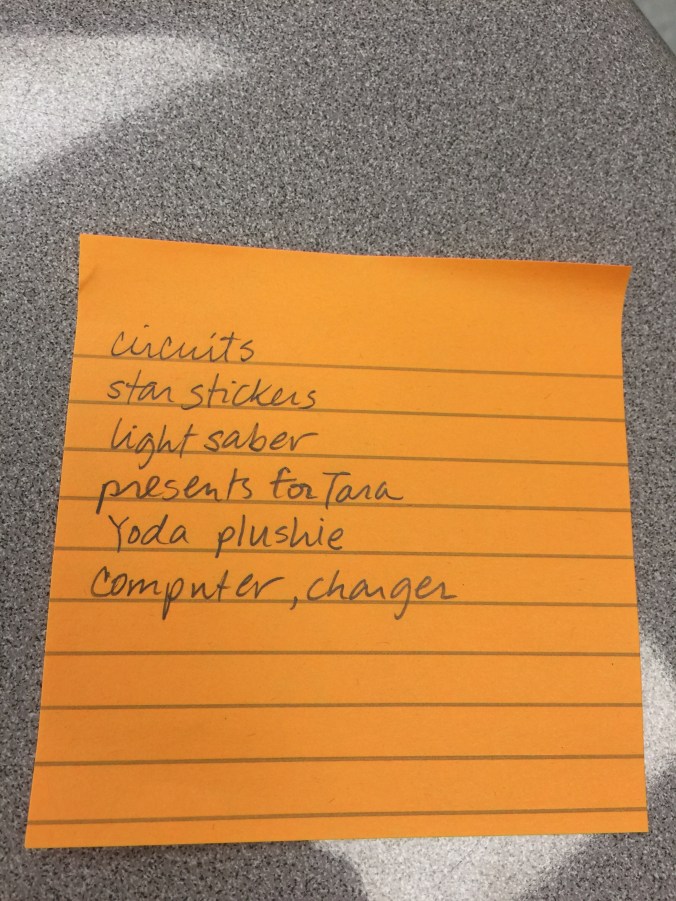 circuits
star stickers
light saber
presents for Tara
Yoda plushie
computer, charger